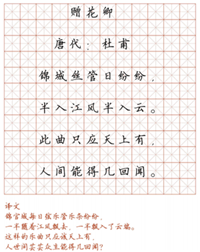 赠花卿
唐代：杜甫
锦城丝管日纷纷，
半入江风半入云。
此曲只应天上有，
人间能得几回闻。
译文
锦官城每日弦乐管乐杂纷纷，
一半随着江风飘去，一半飘入了云端。
这样的乐曲只应该天上有，
人世间芸芸众生能得几回闻？